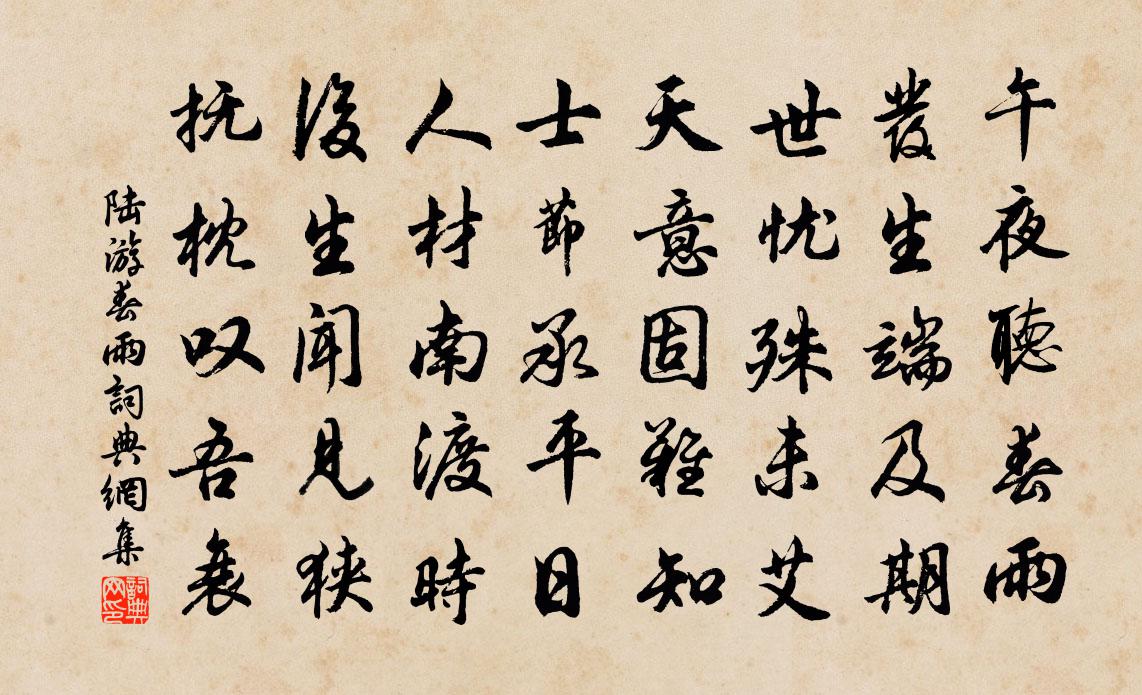 午夜聽春雨
發生端及期
世忧殊未艾
天意固難知
士節承平日
人材南渡時
後生聞見狹
抚枕叹吾衰
陆游春雨詞典網集
詞典网印